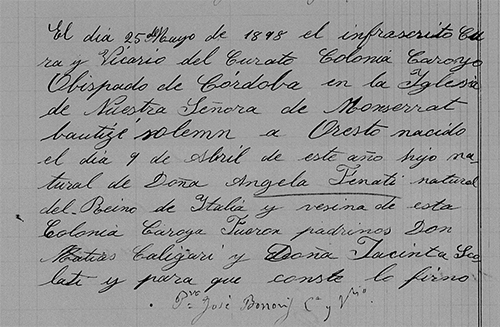 El dia 25 Mayo de 1898 el infrascrito Cu
ra y Vicario del Curato Colonia Caroyo
Obispado de Córdoba en la Iglesia
de Nuestra Señora de Monserrat
bautizé solemn a Oresto nacido
el dia 9 de Abril de este año hijo na
tural de Doña Angela Fenati natural
del Reino de Italia y vesina de esta
Colonia Caroya Fueron padrinos Don
Caligari y Doña Jacinta Sco
lati y para que conste lo firmo
Pro José C. y Vrio.